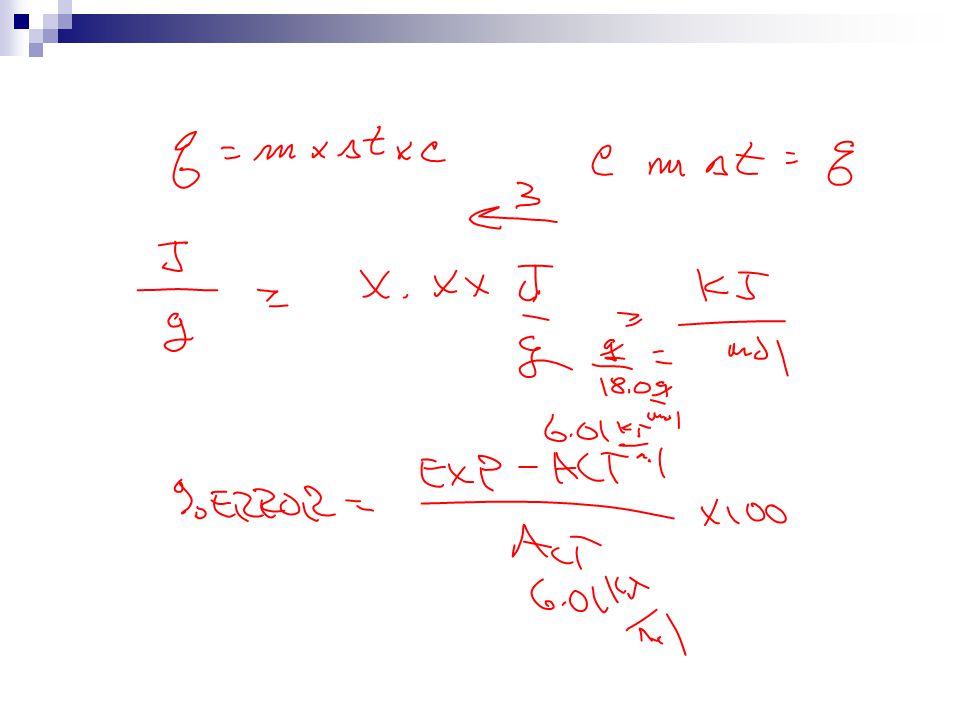 q = m x st x c    c m st = q
3
J/g = X.XX J/g = KJ/mol
g/18.0g/mol =
6.01 KJ/mol
% ERROR = EXP - ACT / ACT x100
6.01 KJ/mol